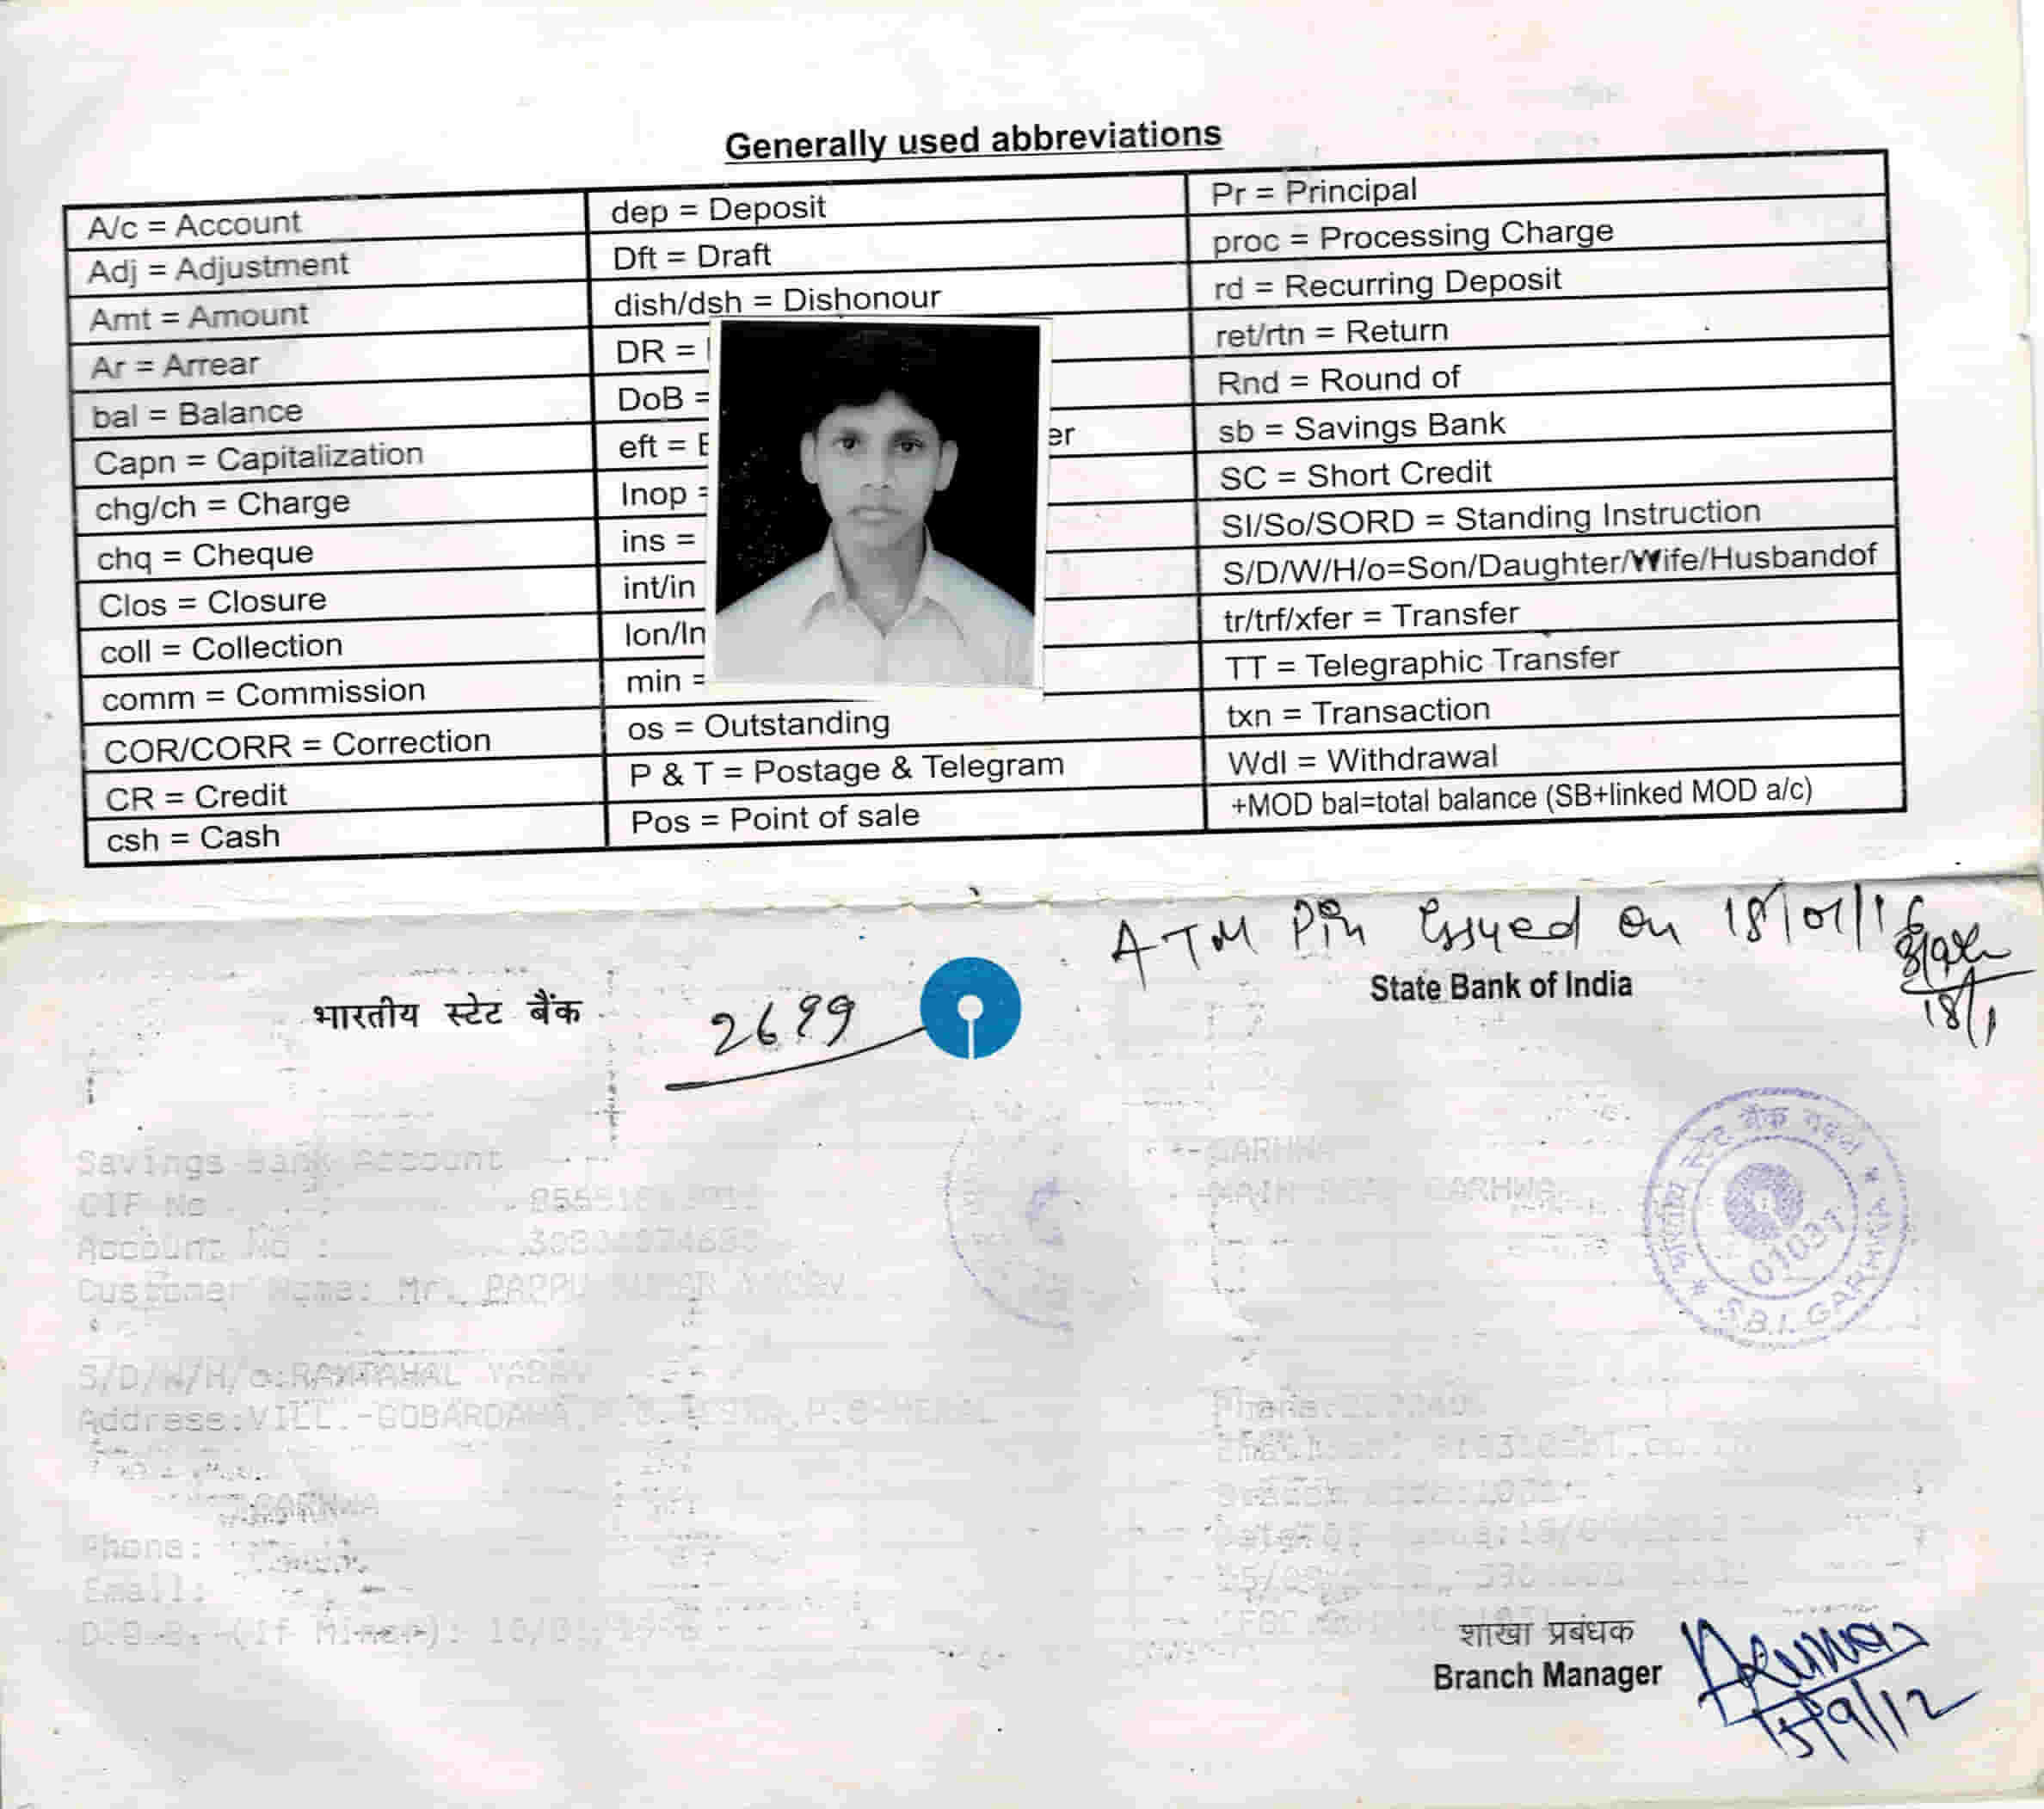 Generally used abbreviations
A/c = Account
Adj = Adjustment
Amt = Amount
Ar = Arrear
bal = Balance
Capn = Capitalization
chg/ch = Charge
chq = Cheque
Clos = Closure
coll = Collection
comm = Commission
COR/CORR = Correction
CR = Credit
csh = Cash
dep = Deposit
Dft = Draft
dish/dsh = Dishonour
DR =
DoB =
eft = E er
Inop =
ins =
int/in
lon/ln
min =
os = Outstanding
P & T = Postage & Telegram
Pos = Point of sale
Pr = Principal
proc = Processing Charge
rd = Recurring Deposit
ret/rtn = Return
Rnd = Round of
sb = Savings Bank
SC = Short Credit
SI/So/SORD = Standing Instruction
S/D/W/H/o=Son/Daughter/Wife/Husbandof
tr/trf/xfer = Transfer
TT = Telegraphic Transfer
txn = Transaction
Wdl = Withdrawal
+MOD bal=total balance (SB+linked MOD a/c)
ATM Pin Issued on 18/01/16
18/1
भारतीय स्टेट बैंक
2699
State Bank of India
Savings Bank Account
CIF No
Account No :
Customer Name: Mr. PAPPU KUMAR YADAV
S/D/W/H/o:RAMTAHAL YADAV
Address:VILL.-GOBARDAHA
GARHWA
Phone:
Email:
D.O.B. (If Minor):
GARHWA
MAIN ROAD GARHWA
भारतीय स्टेट बैंक गढ़वा
S.B.I. GARHWA
Phone:
शाखा प्रबंधक
Branch Manager
15/9/12